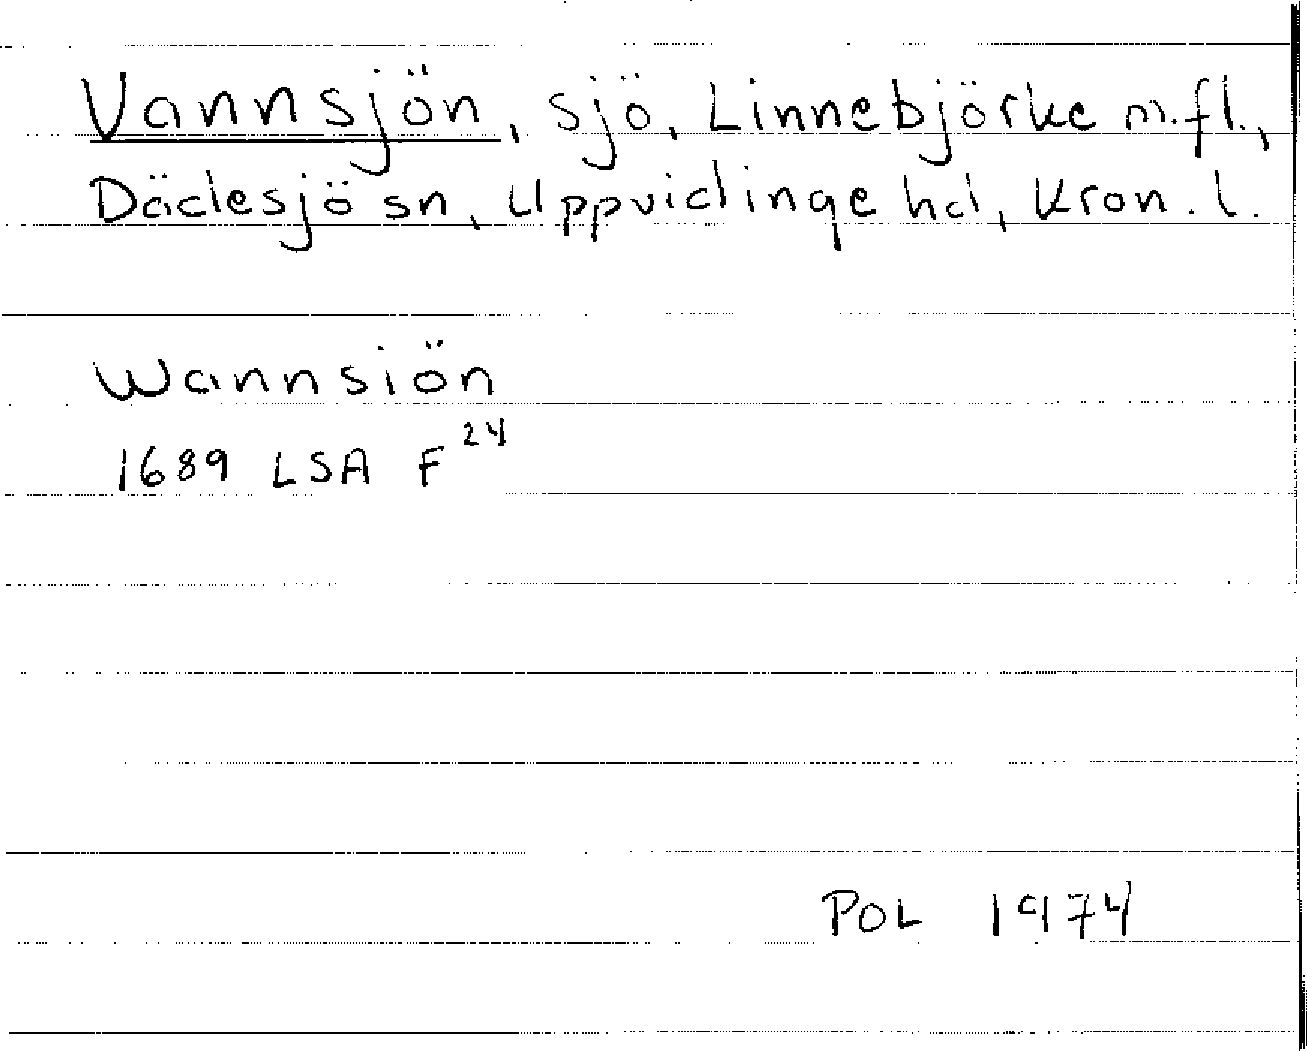 Vannsjön, sjö, Linnebjörke m.fl.,
Dädesjö sn, Uppvidinge hd, Kron. l.
Wannsiön
1689 LSA F²⁴
POL 1974